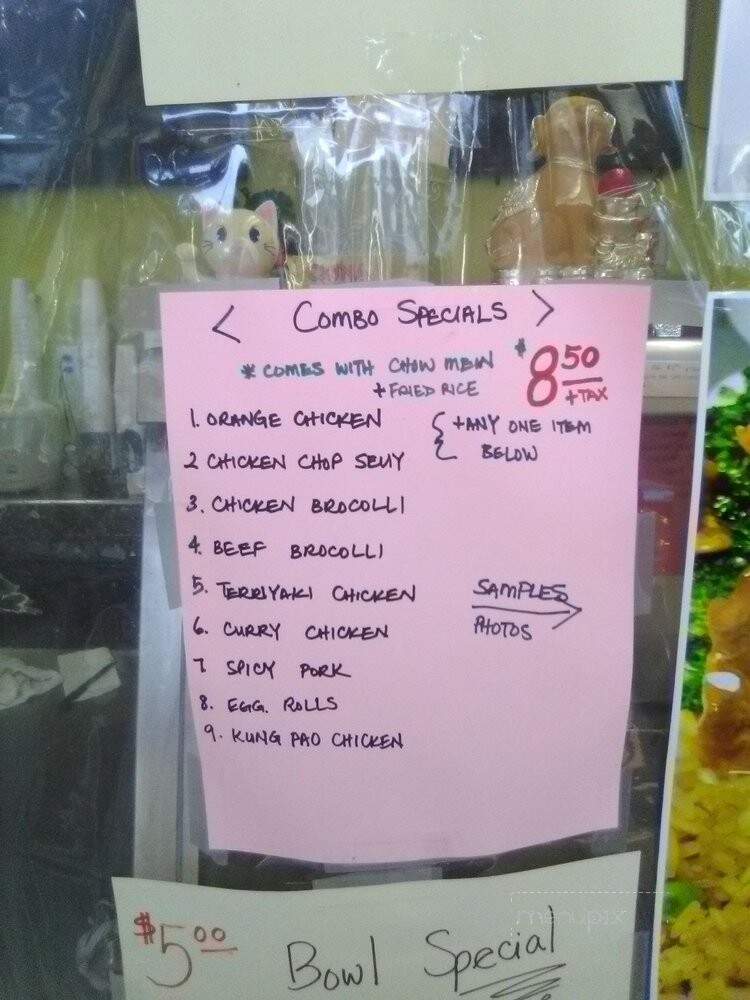 < COMBO SPECIALS >
* COMES WITH CHOW MEIN
+ FRIED RICE
$8.50
+TAX
1. ORANGE CHICKEN
+ANY ONE ITEM
BELOW
2 CHICKEN CHOP SEUY
3. CHICKEN BROCOLLI
4. BEEF BROCOLLI
5. TERRIYAKI CHICKEN
SAMPLES
PHOTOS
6. CURRY CHICKEN
7 SPICY PORK
8. EGG. ROLLS
9. KUNG PAO CHICKEN
$5.00
Bowl Special
menupix